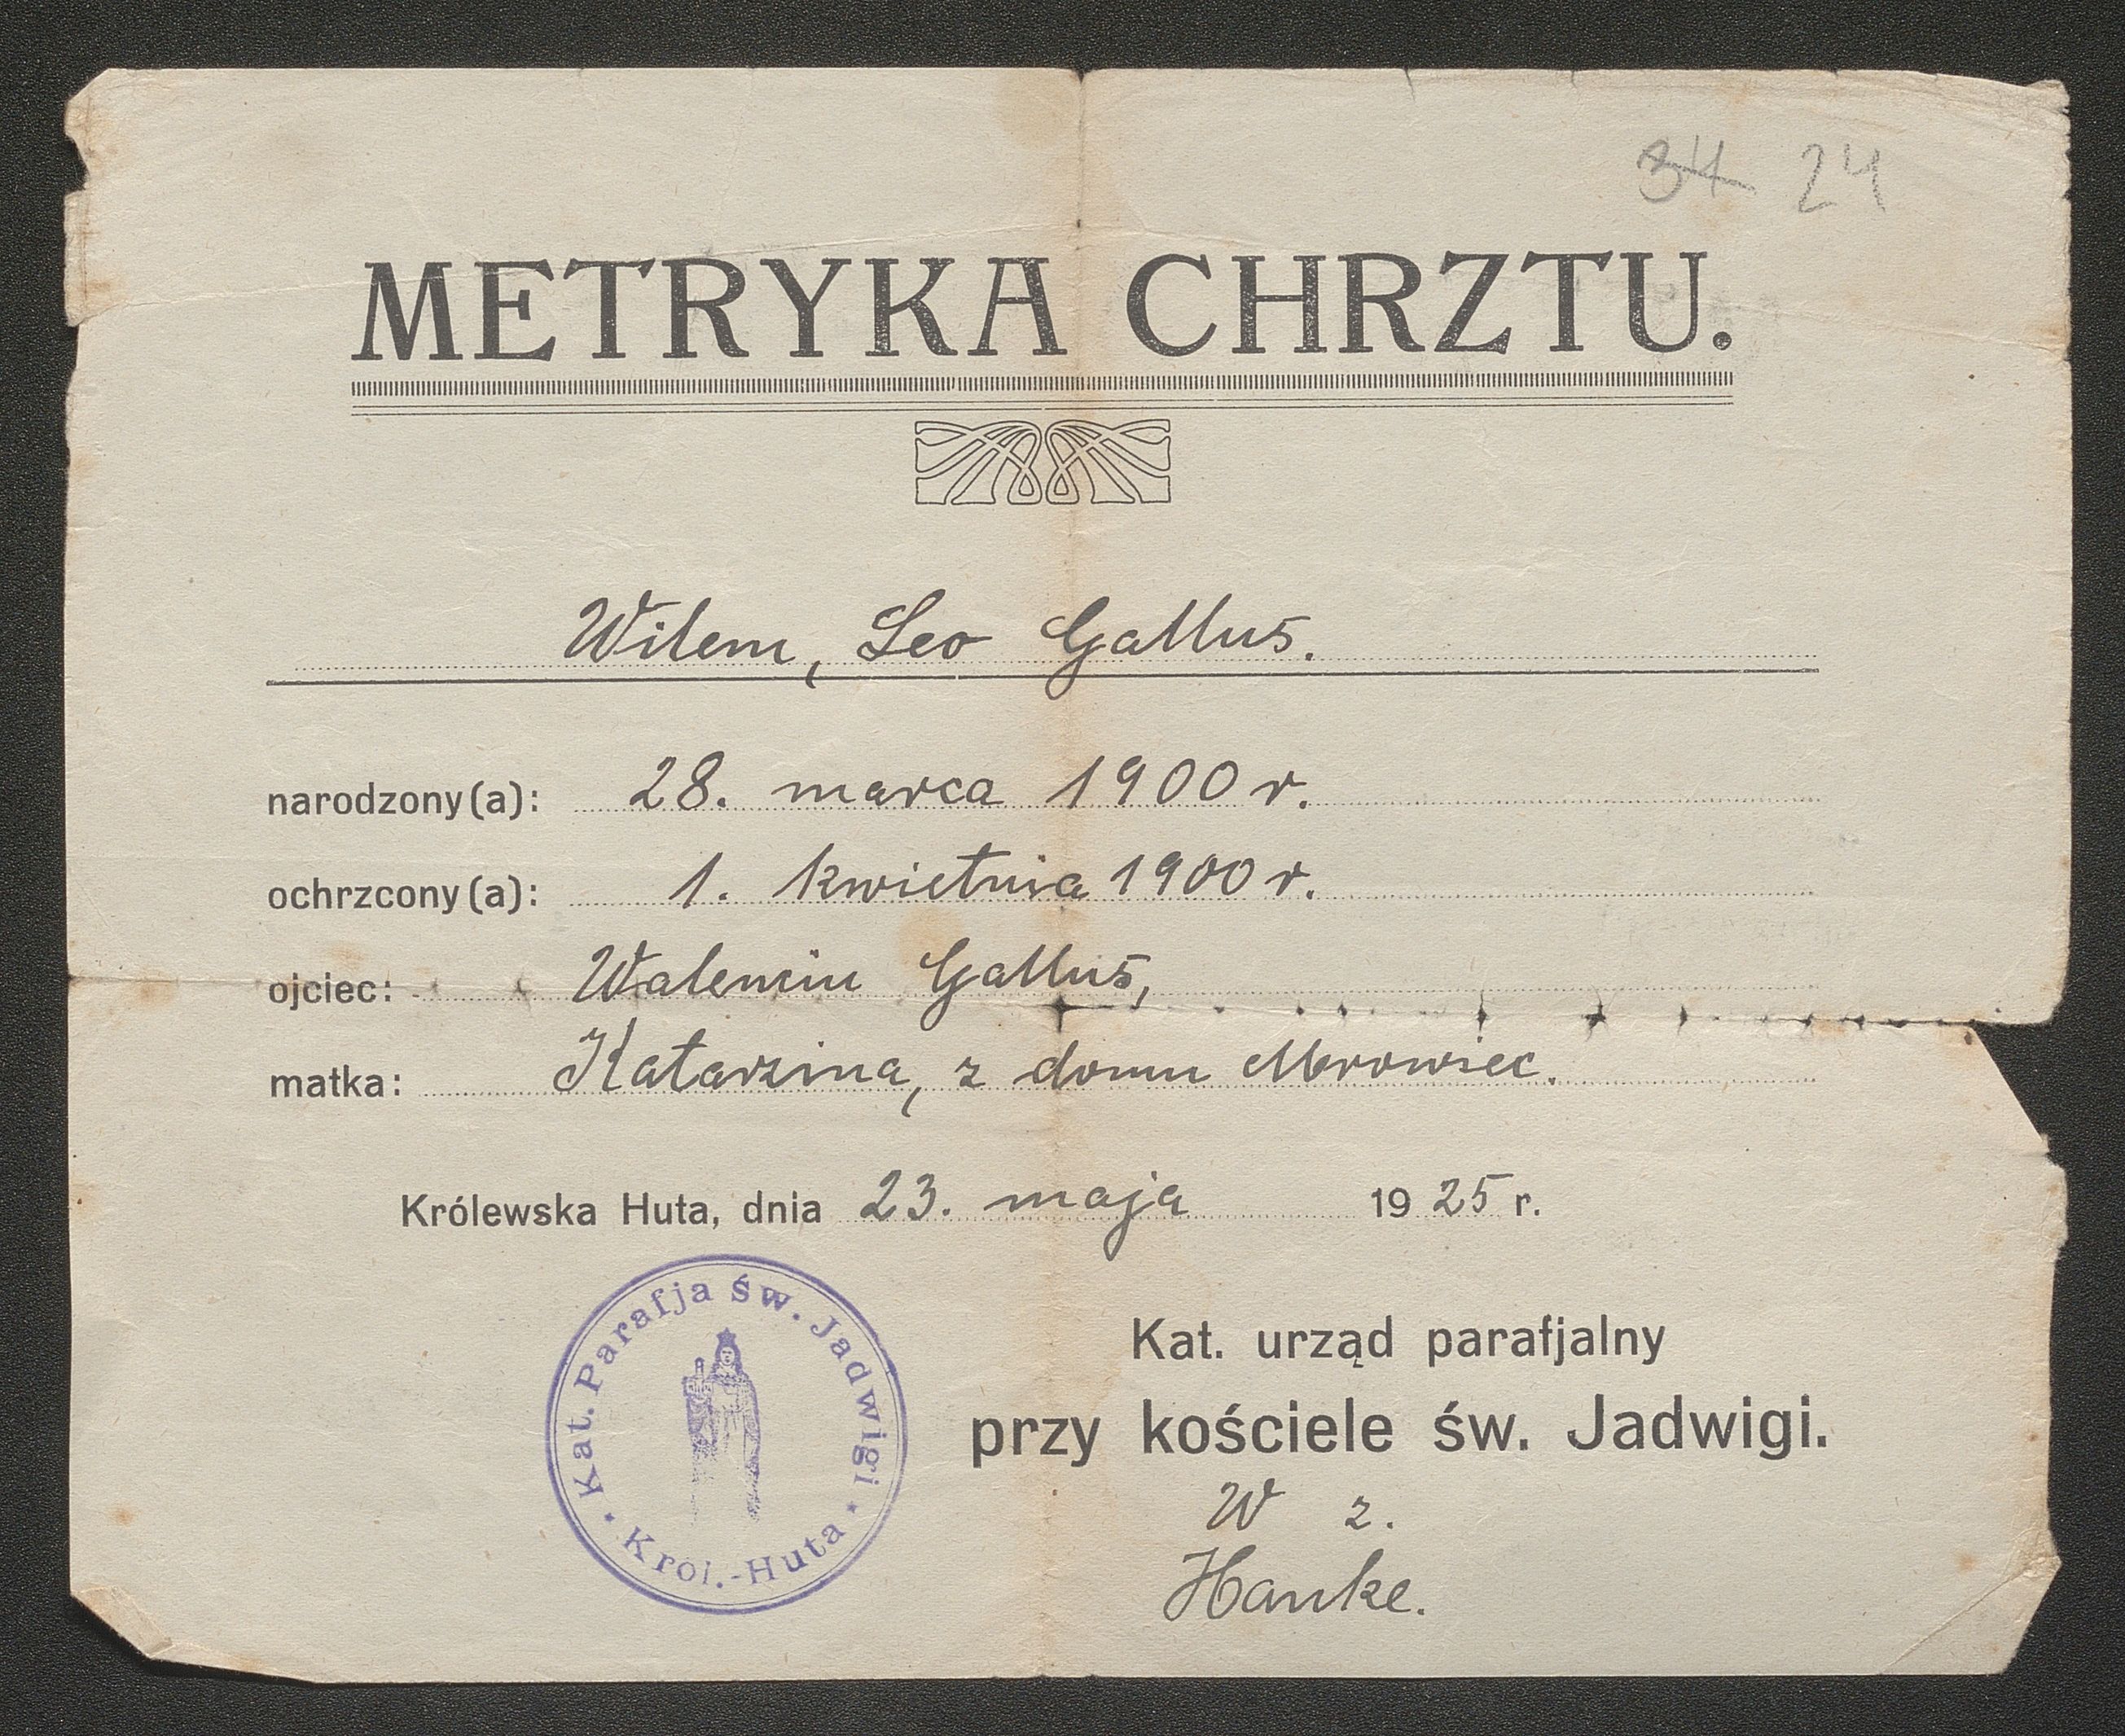 34 24
METRYKA CHRZTU.
Wilem, Leo Gallus.
narodzony(a): 28. marca 1900 r.
ochrzcony(a): 1. kwietnia 1900 r.
ojciec: Walencin Gallus,
matka: Katarzina, z domu Mrowiec.
Królewska Huta, dnia 23. maja 1925 r.
Kat. Parafja Św. Jadwigi
Król.-Huta
Kat. urząd parafjalny
przy kościele św. Jadwigi.
W z.
Hanke.